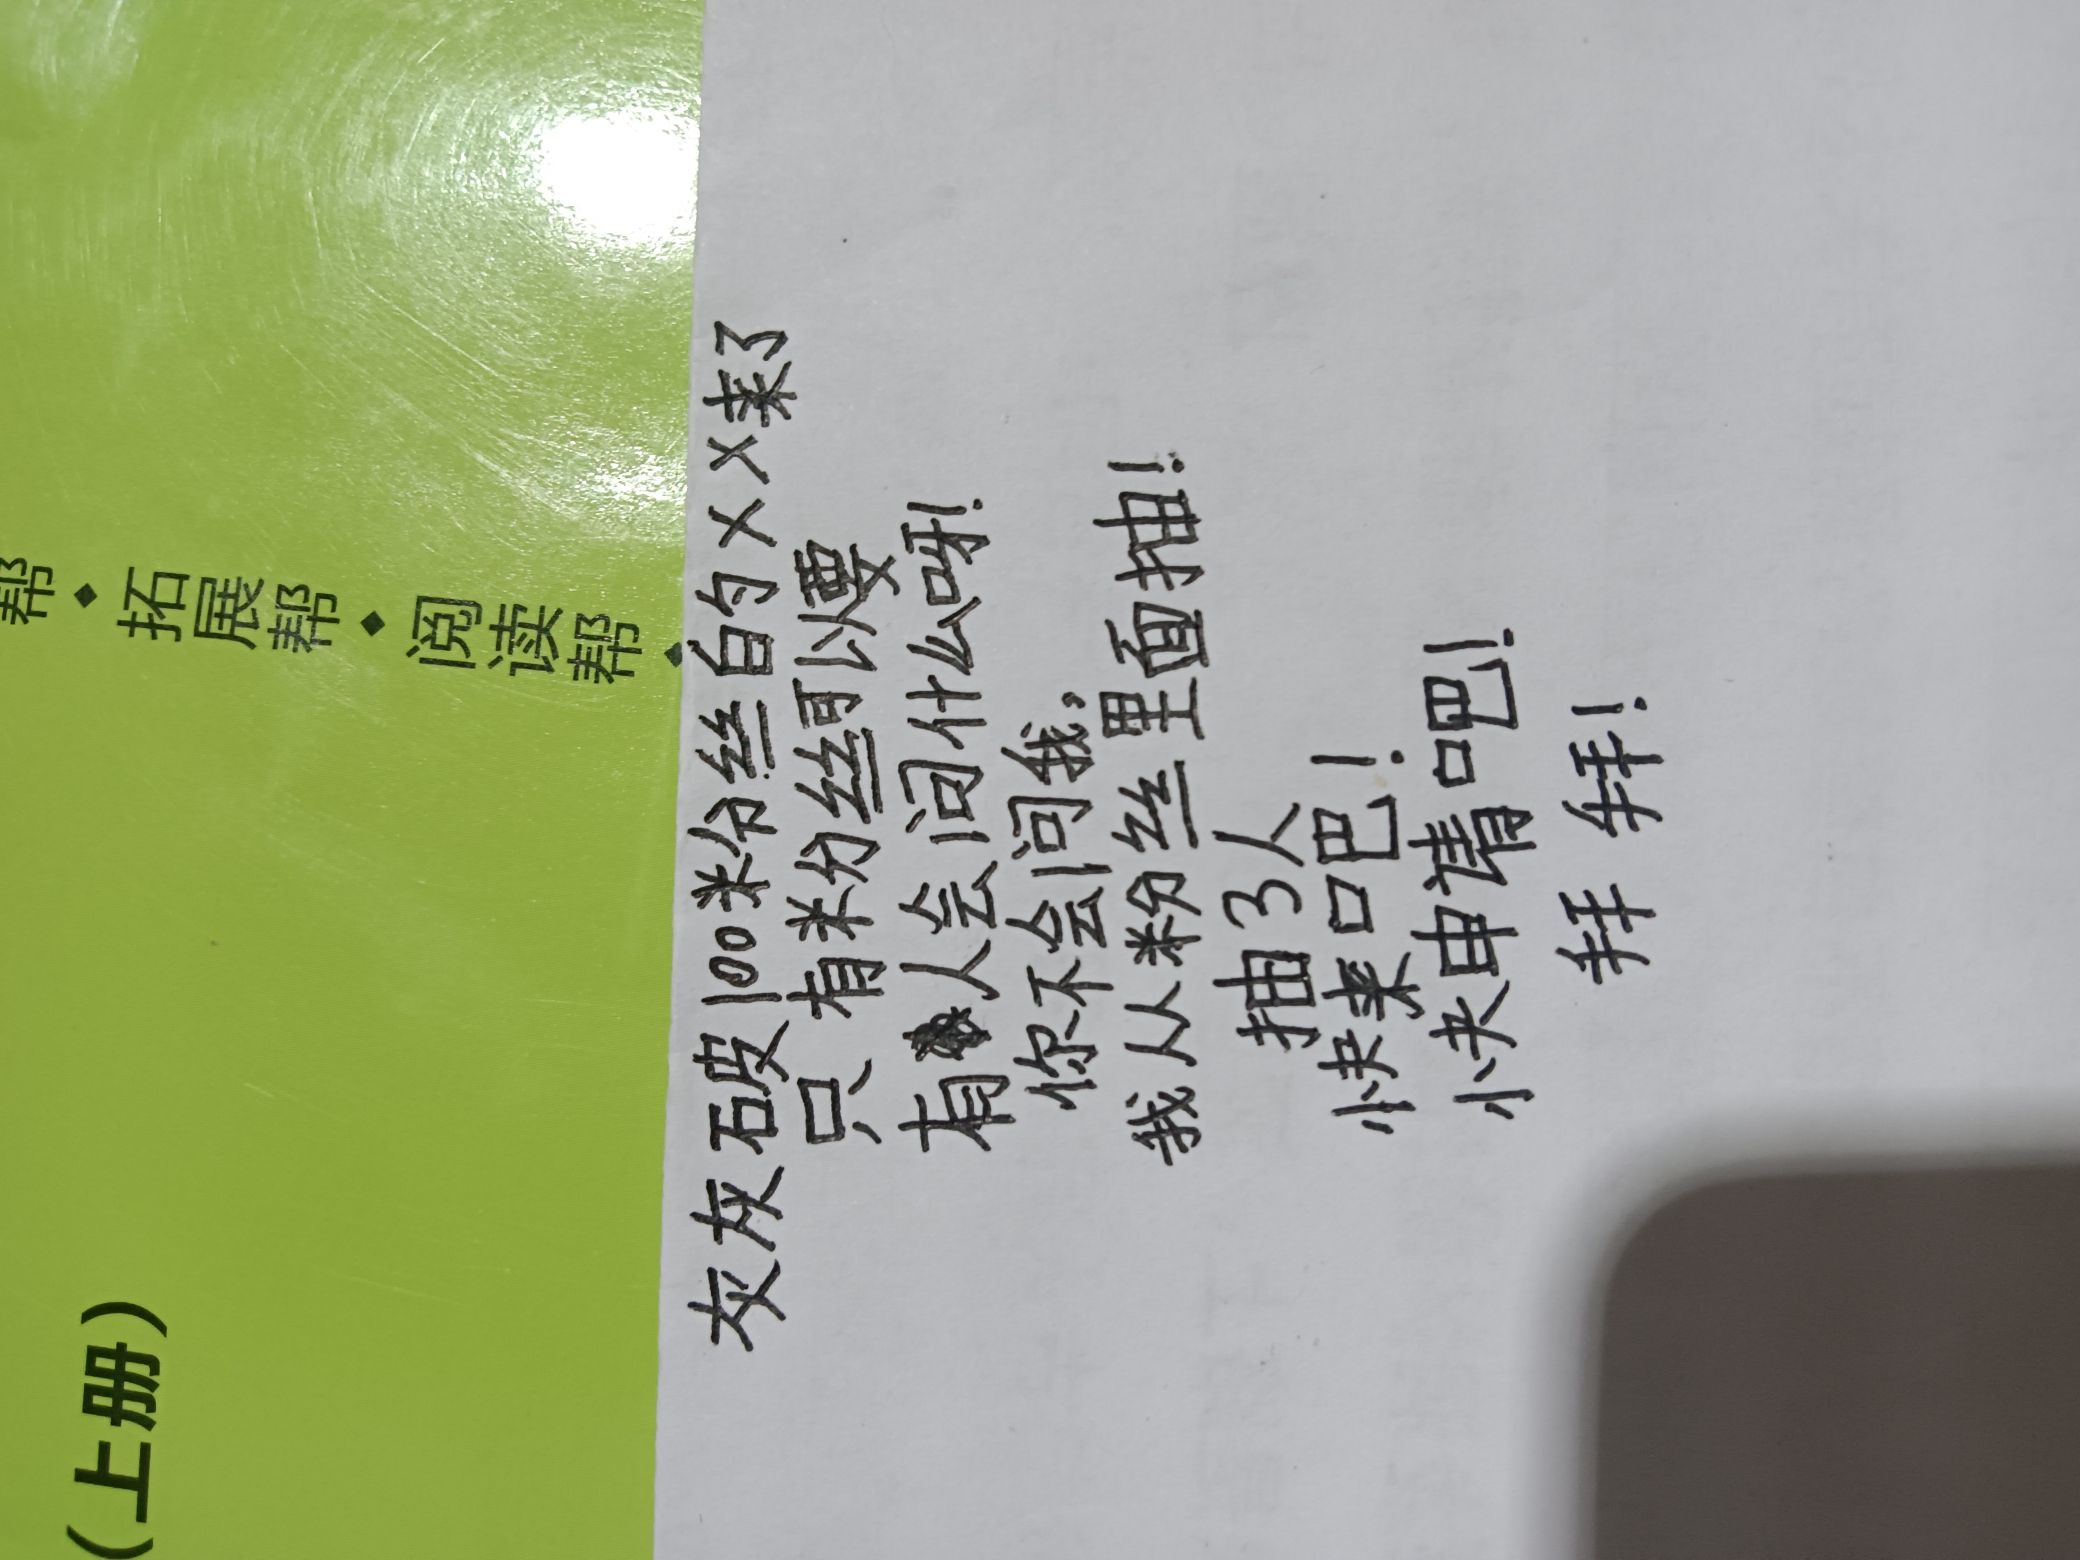 帮◆拓展帮◆阅读帮◆
（上册）
灰灰石皮100米分丝白勺XX来了
只有米分丝可以要
有人会问什么呀!
你不会问我,
我从粉丝里面抽!
抽3人
快来吧!
快申请吧!
拜拜!